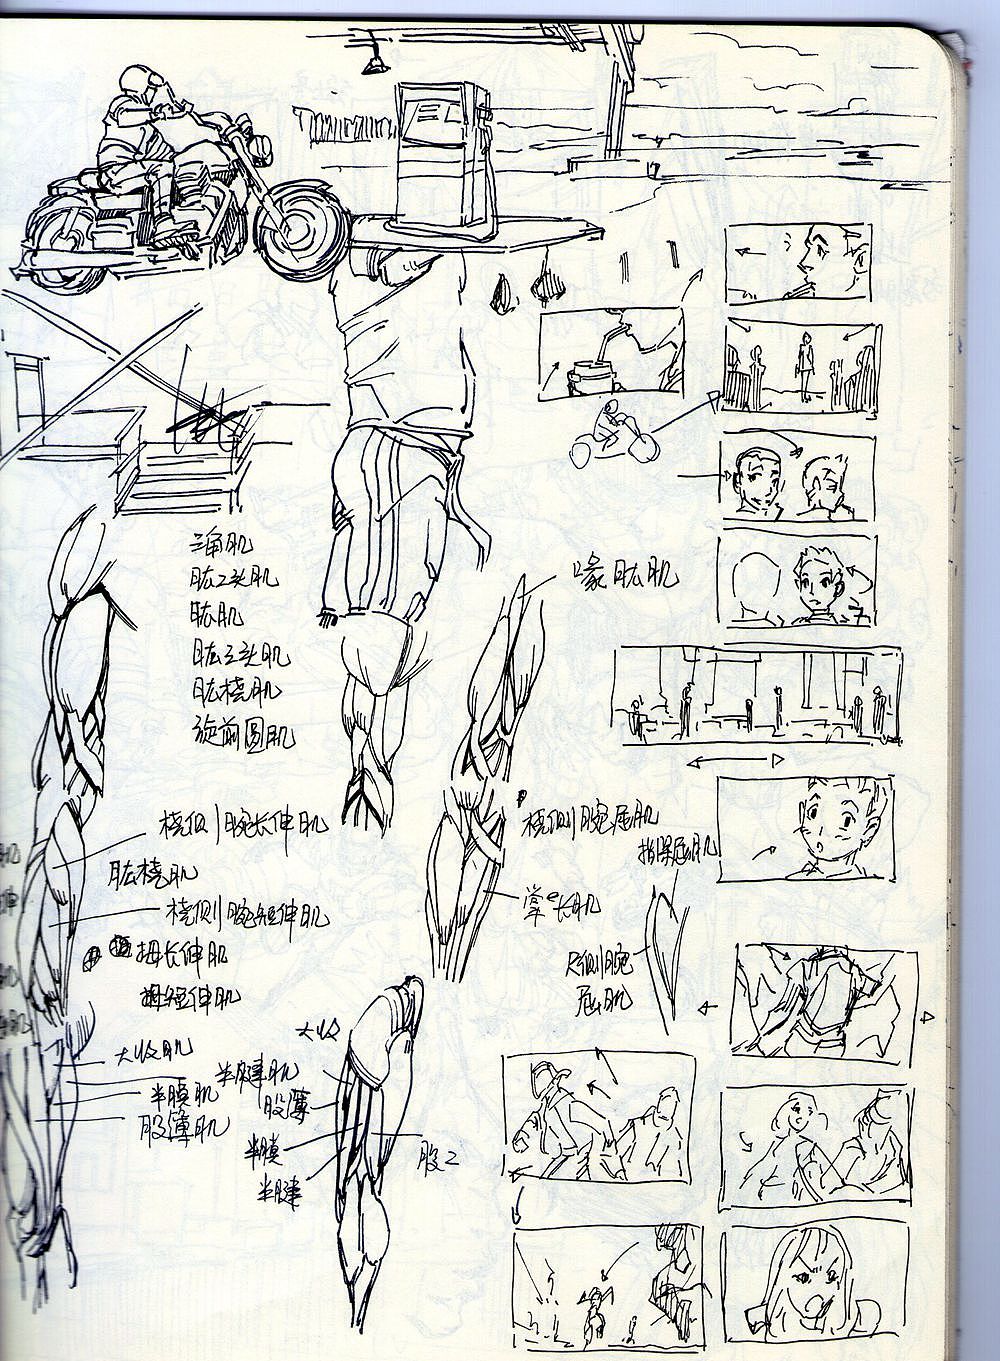 三角肌
肱2头肌
肱肌
肱三头肌
肱桡肌
旋前圆肌
喙肱肌
桡侧腕长伸肌
肱桡肌
桡侧腕短伸肌
拇长伸肌
拇短伸肌
桡侧腕屈肌
指深屈肌
掌长肌
尺侧腕
屈肌
大收肌
半膜肌
股薄肌
大收
半腱肌
股薄
半膜
半腱
股2